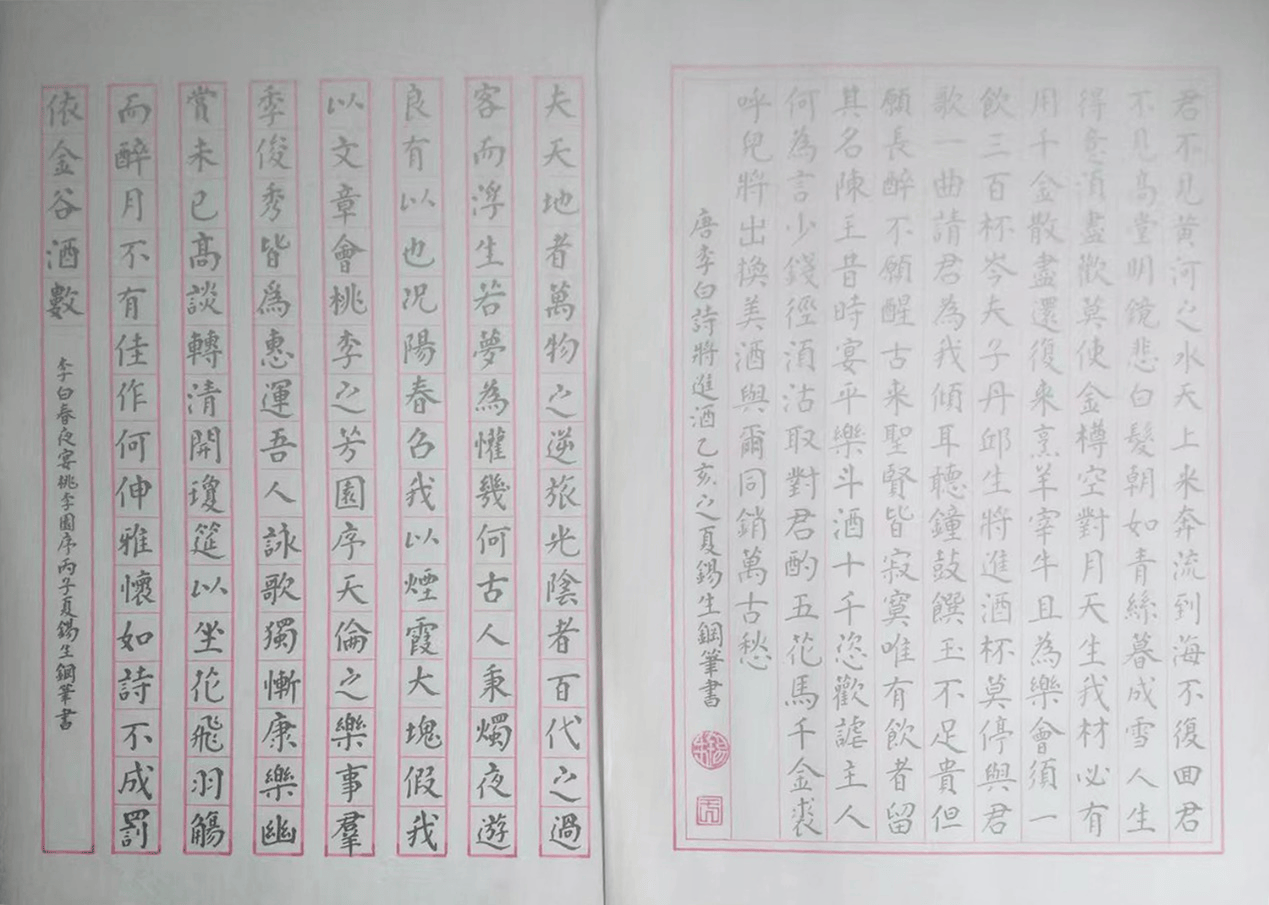 君不見黄河之水天上来奔流到海不復囬君
不見高堂明鏡悲白髮朝如青絲暮成雪人生
得意須盡歡莫使金樽空對月天生我材必有
用千金散盡還復来烹羊宰牛且為樂會須一
飲三百杯岑夫子丹邱生將進酒杯莫停與君
歌一曲請君為我傾耳聽鐘鼓饌玉不足貴但
願長醉不願醒古来聖賢皆寂寞唯有飲者留
其名陳王昔時宴平樂斗酒十千恣歡謔主人
何為言少錢徑須沽取對君酌五花馬千金裘
呼兒將出換美酒與爾同銷萬古愁
唐李白詩將進酒乙亥之夏錫生鋼筆書
夫天地者萬物之逆旅光陰者百代之過
客而浮生若夢為懽幾何古人秉燭夜遊
良有以也況陽春召我以煙霞大塊假我
以文章會桃李之芳園序天倫之樂事羣
季俊秀皆爲惠運吾人詠歌獨慚康樂幽
賞未已高談轉清開瓊筵以坐花飛羽觴
而醉月不有佳作何伸雅懷如詩不成罰
依金谷酒數
李白春夜宴桃李園序丙子夏錫生鋼筆書